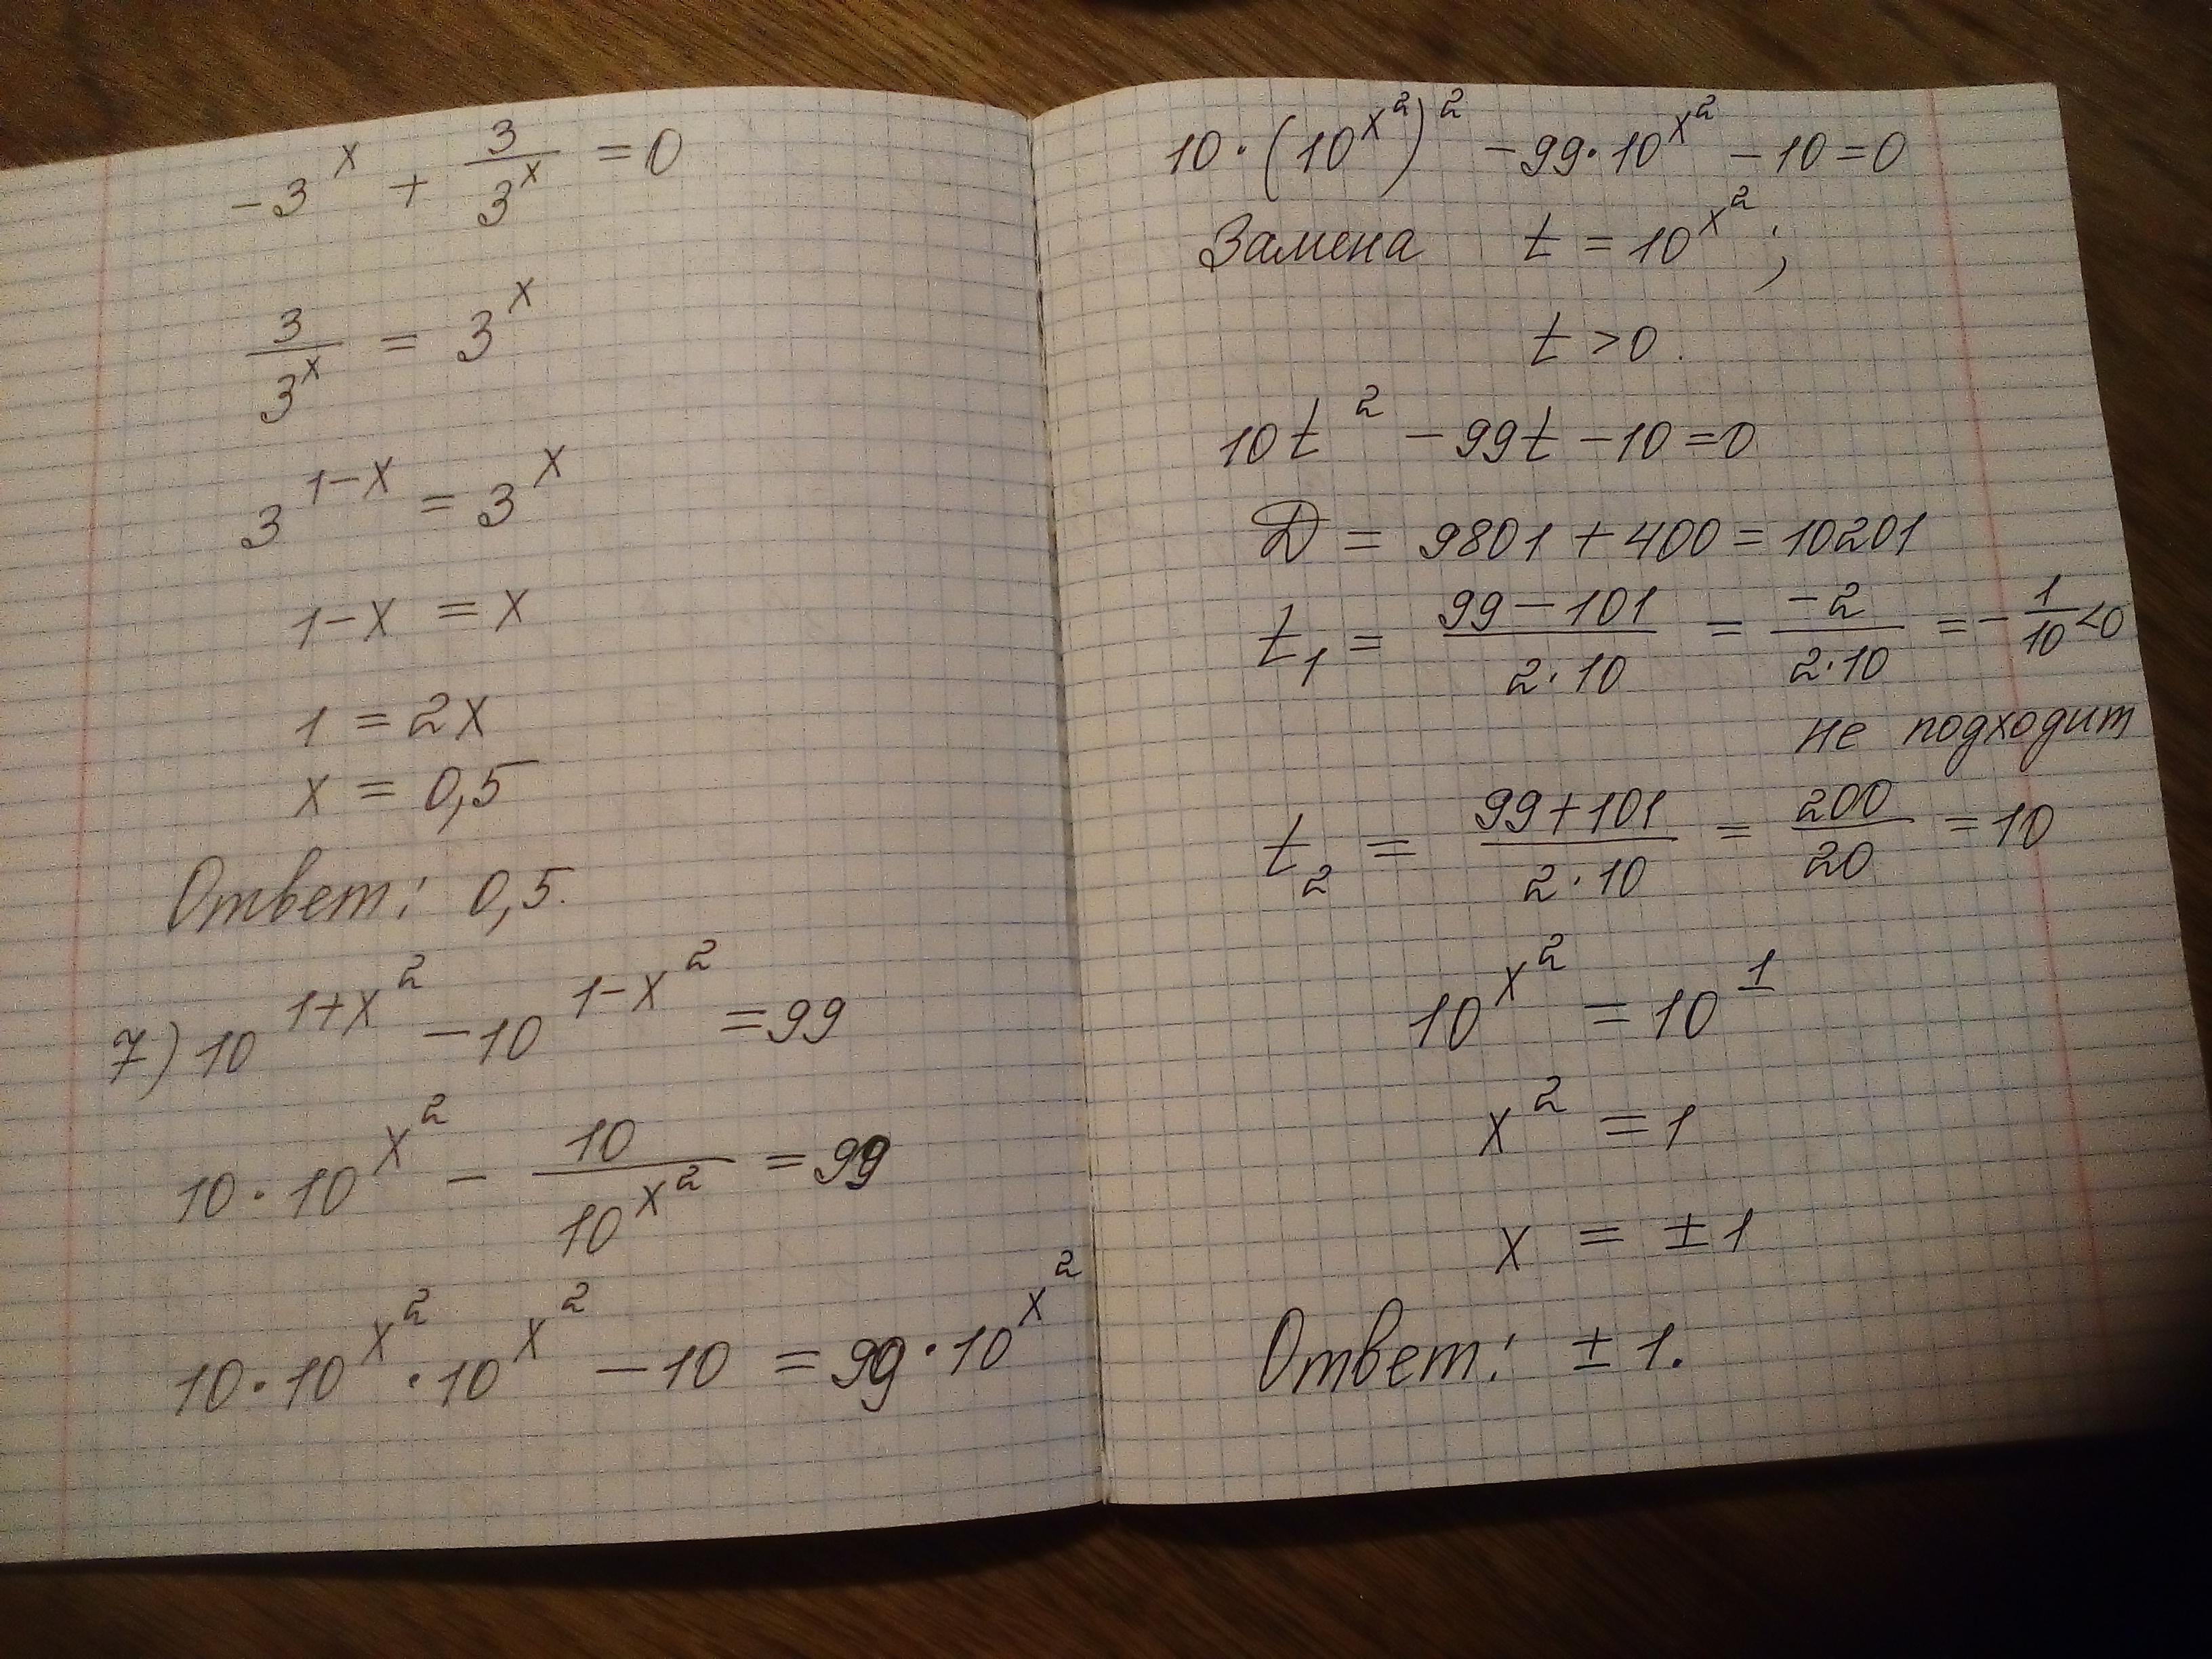 -3^x + 3/3^x = 0
3/3^x = 3^x
3^(1-x) = 3^x
1-x = x
1 = 2x
x = 0,5
Ответ: 0,5.
7) 10^(1+x^2) - 10^(1-x^2) = 99
10·10^(x^2) - 10/10^(x^2) = 99
10·10^(x^2)·10^(x^2) - 10 = 99·10^(x^2)
10·(10^(x^2))^2 - 99·10^(x^2) - 10 = 0
Замена t = 10^(x^2);
t > 0.
10t^2 - 99t - 10 = 0
D = 9801 + 400 = 10201
t_1 = (99-101)/(2·10) = -2/(2·10) = -1/10 < 0
не подходит
t_2 = (99+101)/(2·10) = 200/20 = 10
10^(x^2) = 10^1
x^2 = 1
x = ±1
Ответ: ±1.